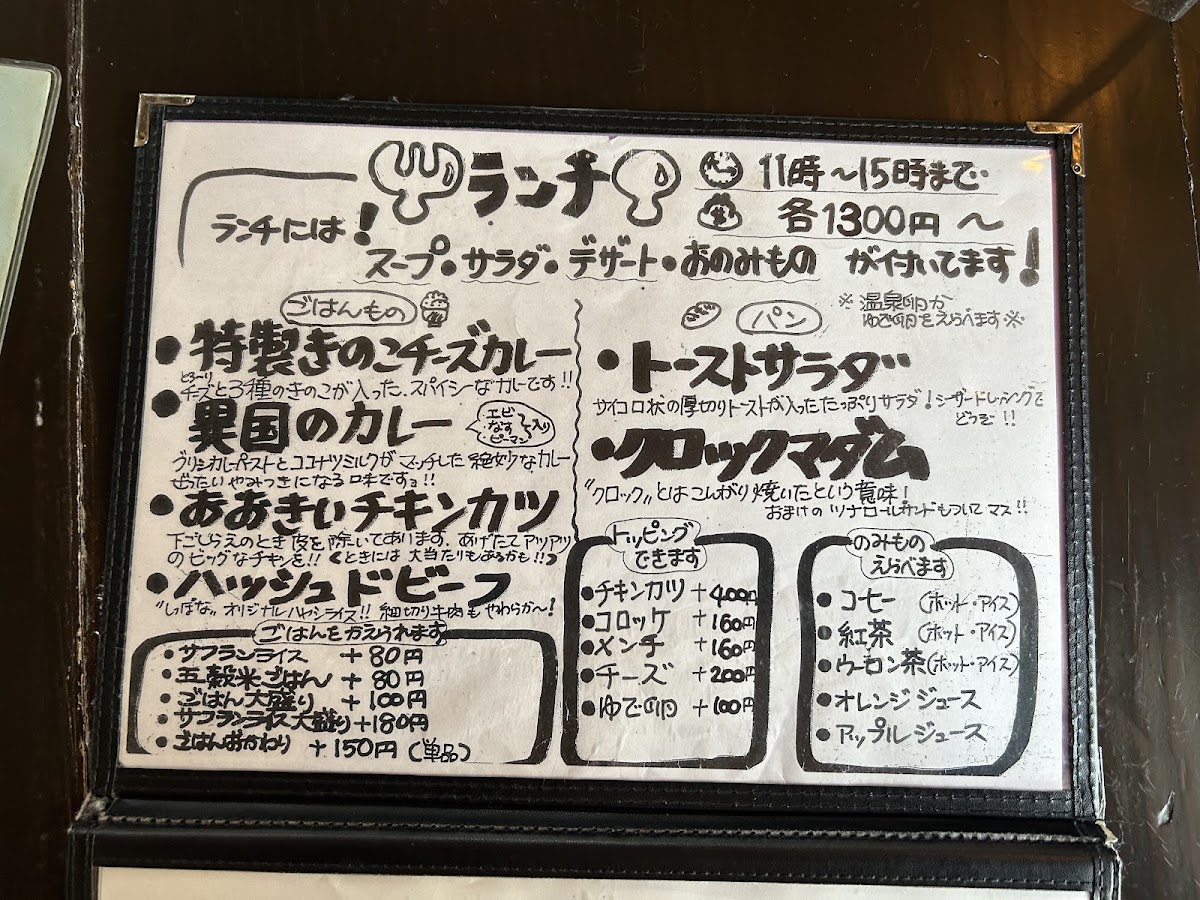 ランチ
11時～15時まで
各1300円～
ランチには!
スープ・サラダ・デザート・おのみもの が付いてます!
ごはんもの
・特製きのこチーズカレー
とろ～り
チーズと3種のきのこが入った、スパイシーなカレーです!!
・異国のカレー
エビ
なす
ピーマン
入り
グリーンカレーペーストとココナツミルクがマッチした絶妙なカレー
ぜったいやみつきになる味ですョ!!
・おおきいチキンカツ
下ごしらえのとき皮を除いてあります。あげたてアツアツ
のビッグなチキンを!! (ときには大当たりもあるかも!!)
・ハッシュドビーフ
"しっぽな"オリジナルハヤシライス!! 細切り牛肉もやわらか～!
ごはんをかえられます
・サフランライス +80円
・五穀米ごはん +80円
・ごはん大盛り +100円
・サフランライス大盛り+180円
・ごはんおかわり +150円(単品)
パン
※温泉卵か
ゆで卵をえらべます※
・トーストサラダ
サイコロ状の厚切りトーストが入ったたっぷりサラダ!シーザードレッシングで
どうぞ!!
・クロックマダム
"クロック"とはこんがり焼いたという意味!
おまけのツナロールサンドもついてマス!!
トッピング
できます
・チキンカツ +400円
・コロッケ +160円
・メンチ +160円
・チーズ +200円
・ゆで卵 +100円
のみもの
えらべます
・コーヒー (ホット・アイス)
・紅茶 (ホット・アイス)
・ウーロン茶(ホット・アイス)
・オレンジジュース
・アップルジュース